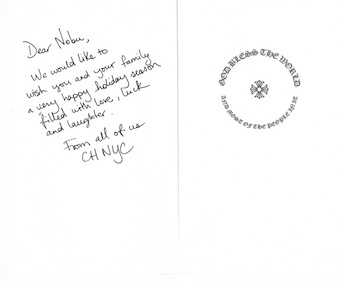 Dear Nobu,
We would like to
wish you and your family
a very happy holiday season
filled with love, luck
and laughter.
From all of us
CH NYC
GOD BLESS THE WORLD
AND MOST OF THE PEOPLE IN IT